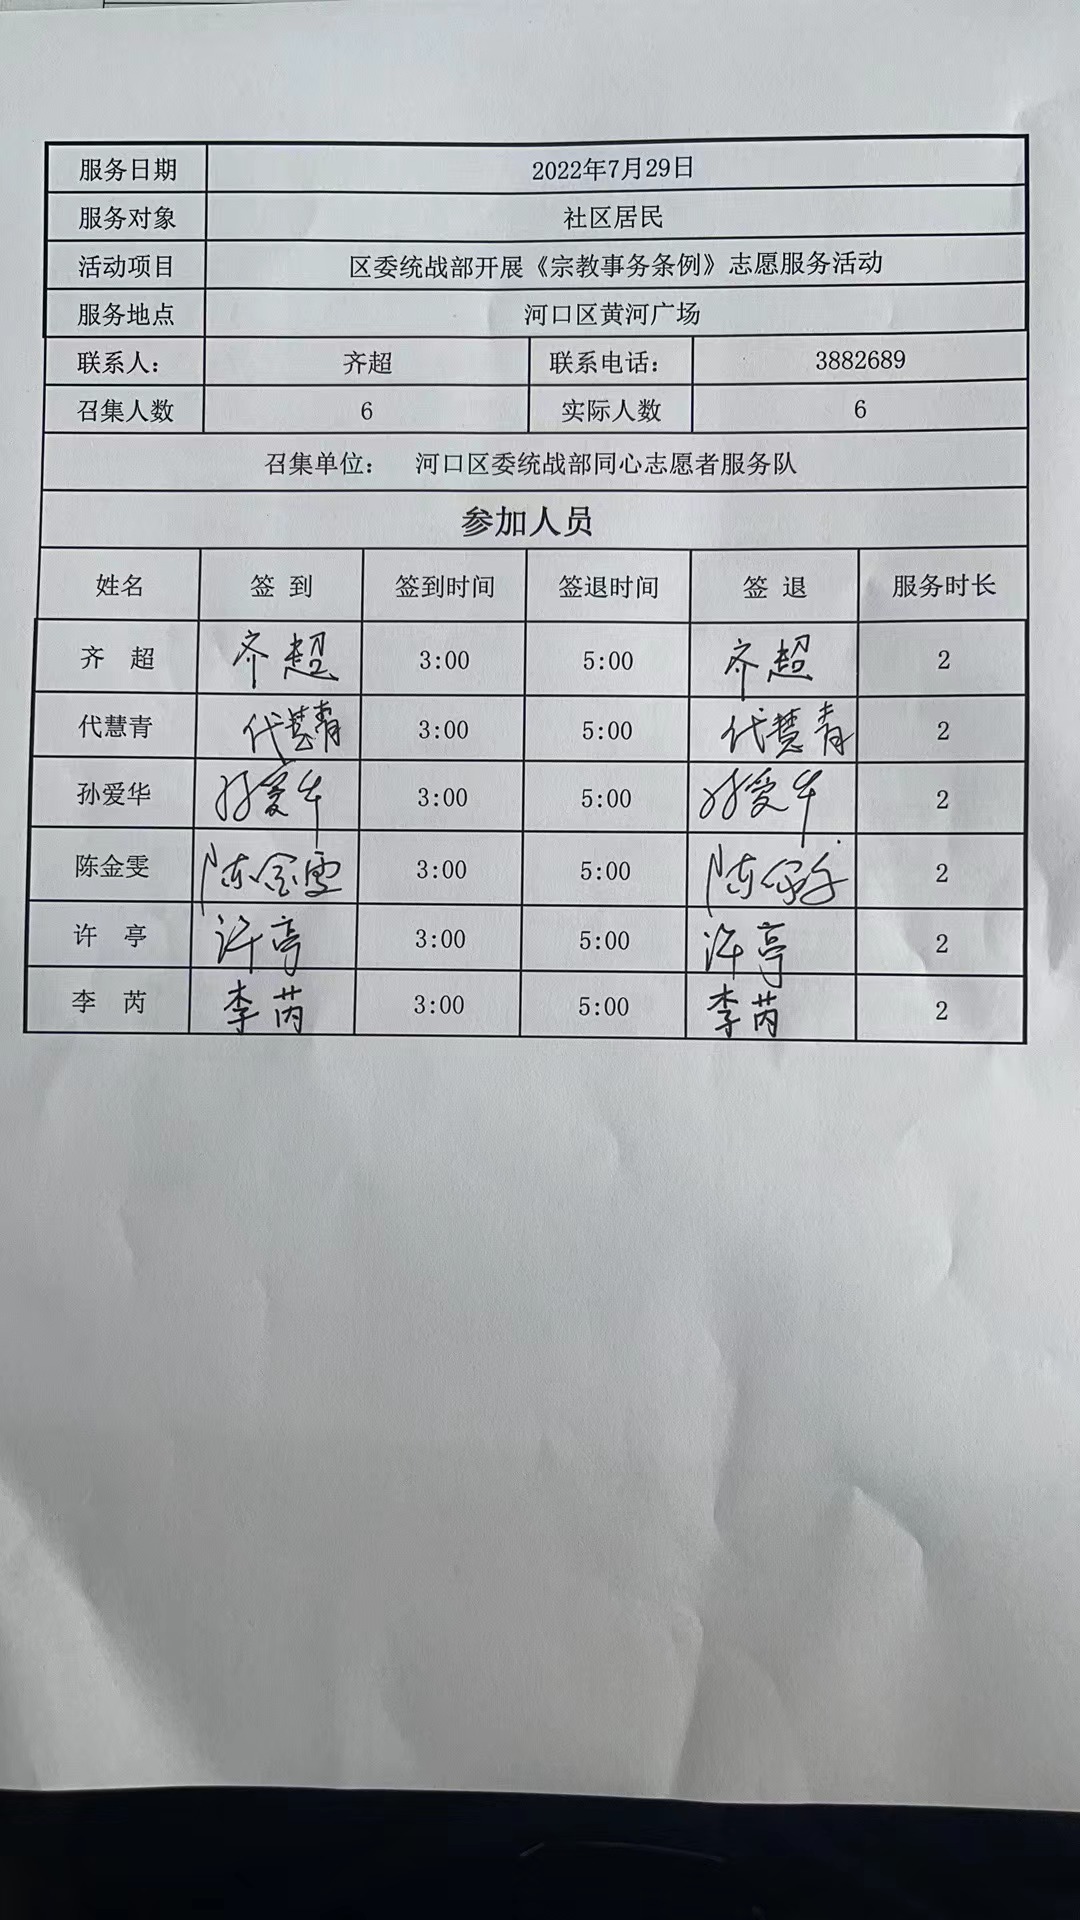 服务日期 2022年7月29日
服务对象 社区居民
活动项目 区委统战部开展《宗教事务条例》志愿服务活动
服务地点 河口区黄河广场
联系人： 齐超 联系电话： 3882689
召集人数 6 实际人数 6
召集单位： 河口区委统战部同心志愿者服务队
参加人员
姓名 签 到 签到时间 签退时间 签 退 服务时长
齐 超 齐超 3:00 5:00 齐超 2
代慧青 代慧青 3:00 5:00 代慧青 2
孙爱华 孙爱华 3:00 5:00 孙爱华 2
陈金雯 陈金雯 3:00 5:00 陈 2
许 亭 许亭 3:00 5:00 许亭 2
李 芮 李芮 3:00 5:00 李芮 2